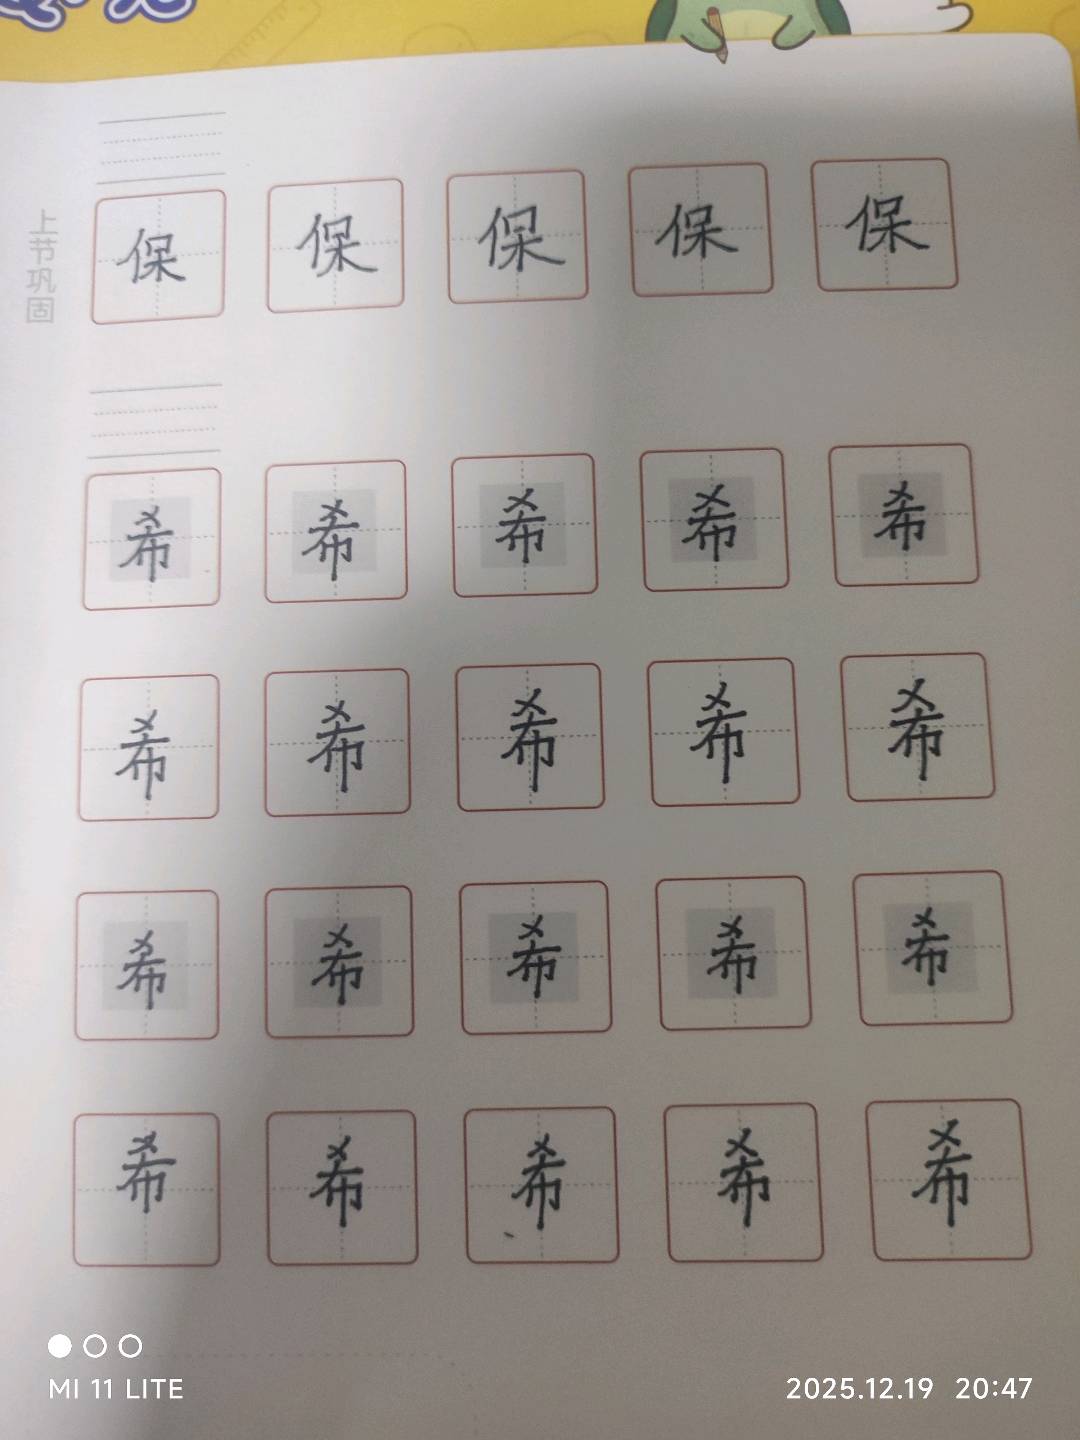 上节巩固
保 保 保 保 保
希 希 希 希 希
希 希 希 希 希
希 希 希 希 希
希 希 希 希 希
MI 11 LITE
2025.12.19 20:47